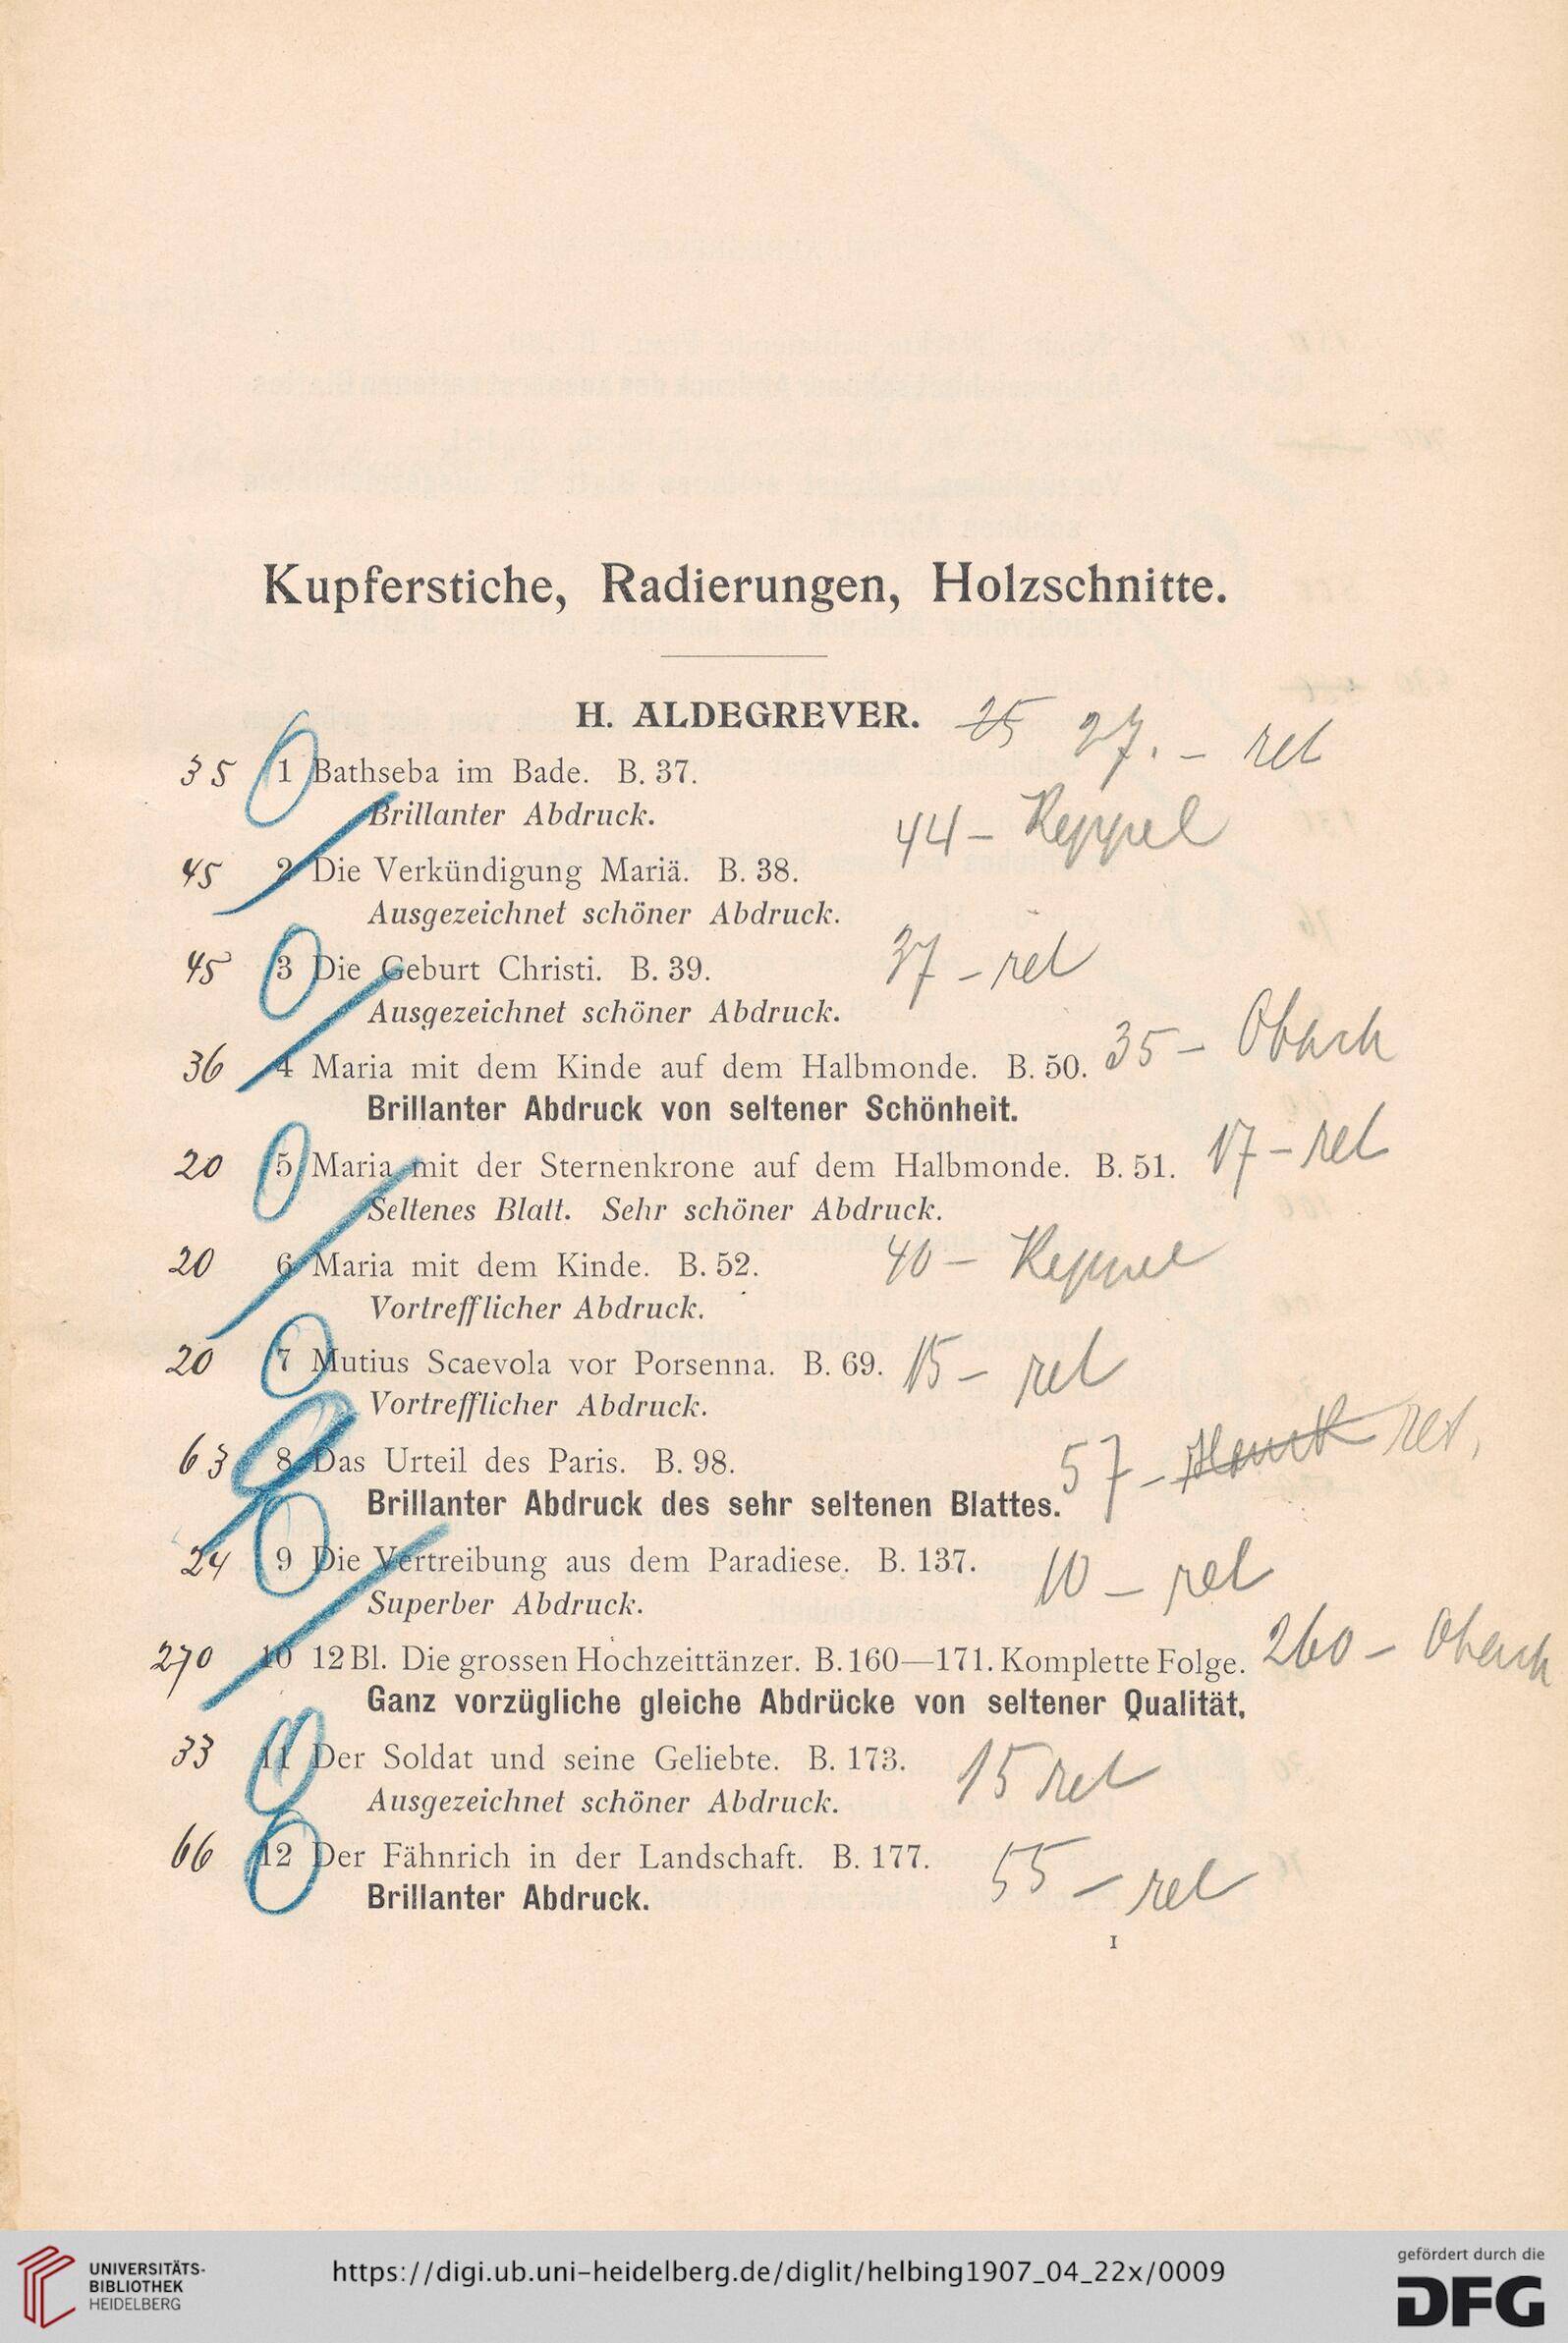 Kupferstiche, Radierungen, Holzschnitte.
H. ALDEGREVER. 25 27.– ret
35 1 Bathseba im Bade. B. 37.
Brillanter Abdruck. 44 – Keppel
45 2 Die Verkündigung Mariä. B. 38.
Ausgezeichnet schöner Abdruck.
45 3 Die Geburt Christi. B. 39. 37 – ret
Ausgezeichnet schöner Abdruck.
36 4 Maria mit dem Kinde auf dem Halbmonde. B. 50. 35 – Obach
Brillanter Abdruck von seltener Schönheit.
20 5 Maria mit der Sternenkrone auf dem Halbmonde. B. 51. 17 – ret
Seltenes Blatt. Sehr schöner Abdruck.
20 6 Maria mit dem Kinde. B. 52. 40 – Keppel
Vortrefflicher Abdruck.
20 7 Mutius Scaevola vor Porsenna. B. 69. 15 – ret
Vortrefflicher Abdruck.
63 8 Das Urteil des Paris. B. 98. 57 – ret,
Brillanter Abdruck des sehr seltenen Blattes.
24 9 Die Vertreibung aus dem Paradiese. B. 137. 10 – ret
Superber Abdruck.
270 10 12 Bl. Die grossen Hochzeittänzer. B. 160—171. Komplette Folge. 260 – Obach
Ganz vorzügliche gleiche Abdrücke von seltener Qualität.
33 11 Der Soldat und seine Geliebte. B. 173. 15 ret
Ausgezeichnet schöner Abdruck.
66 12 Der Fähnrich in der Landschaft. B. 177. 55 – ret
Brillanter Abdruck.
I
UNIVERSITÄTS-
BIBLIOTHEK
HEIDELBERG
https://digi.ub.uni-heidelberg.de/diglit/helbing1907_04_22x/0009
gefördert durch die
DFG